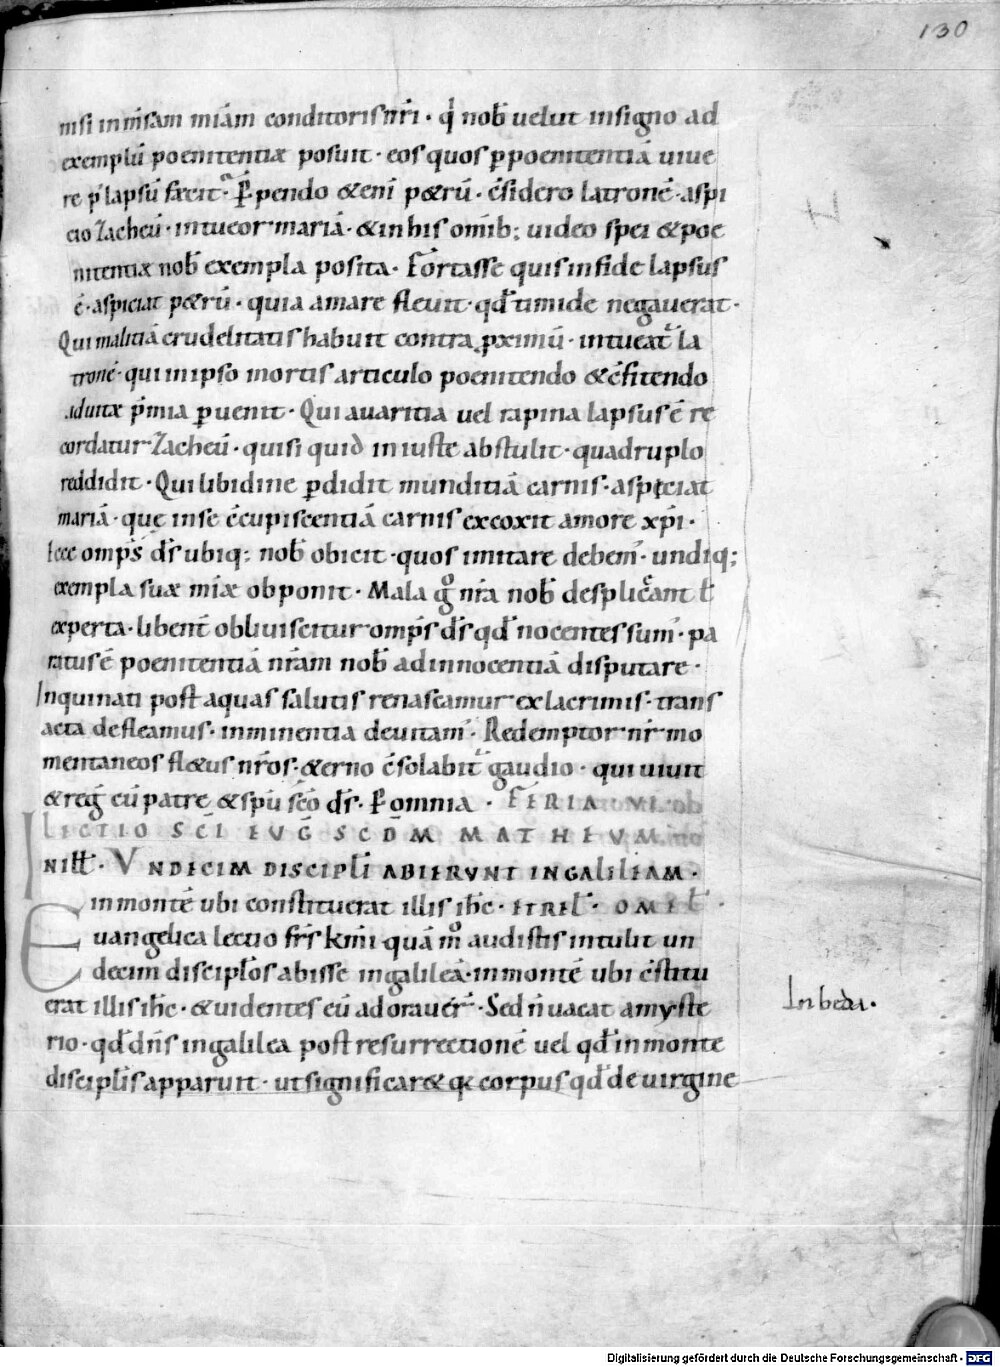 130
nisi inm̄sam miām conditoris nr̄i · q' nob̄ uelut insigno ad
exemplū poenitentiæ posuit · eos quos p̱ poenitentiā uiue
re p' lapsū fecit · P̱pendo &eni̅ p&rū · c̄sidero latronē · aspi
cio Zacheū · intueor mariā · &inhis omīb; uideo spei &poe
nitentiæ nob̄ exempla posita · Fortasse quis infide lapsus
ē · aspiciat p&rū · quia amare fleuit · qd̄ timide negauerat ·
Qui malitiā crudelitatis habuit contra p̱ximū · intueat' la
tronē · qui inipso mortis articulo poenitendo &c̄fitendo
aduitæ p̄mia p̱uenit · Qui auaritia uel rapina lapsus ē re
cordatur Zacheū · quisi quid iniuste abstulit · quadruplo
reddidit · Qui libidine p̱didit munditiā carnis · aspiciat
mariā · que inse c̄cupiscentiā carnis excoxit amore xp̄i ·
Ecce omp̄s d̄s ubiq; nob̄ obicit · quos imitare debem' · undiq;
exempla suæ miæ obponit · Mala g° nr̄a nob̄ desplicēant ł
experta · libent̄ obliuiscitur omp̄s d̄s qd̄ nocentes sum' · pa
ratus ē poenitentiā nr̄am nob̄ adinnocentiā disputare ·
Inquinati post aquas salutis renascamur ex lacrimis · trans
acta defleamus · inminentia deuitam' · Redemptor nr̄ mo
mentaneos fl&us nr̄os · &erno c̄solabit' gaudio · qui uiuit
&reg̅ cū patre &sp̄u sc̄o d̄s · P̱ omnia · FERIA VI ·
LECTIO SC̄I EVG̅ SCDM̅ MATHEVM
IN ill̄ · VNDECIM DISCIPLI̅ ABIERVNT INGALILEAM ·
inmontē ubi constituerat illis ih̄c · ETREL̄ · OMEL̄ ·
Euangelica lectio fr̄s kmi̅ · quā m° audistis intulit un
decim discipl̄os abisse ingalileā · inmontē ubi c̄stitu
erat illis ih̄c · &uidentes eū adorauer̄ · Sed n̄ uacat amyste
rio · qd̄ dn̄s ingalilea post resurrectionē uel qd̄ inmonte
discipl̄is apparuit · ut significar& qa corpus qd̄ de uirgine
In beda ·
Digitalisierung gefördert durch die Deutsche Forschungsgemeinschaft - DFG